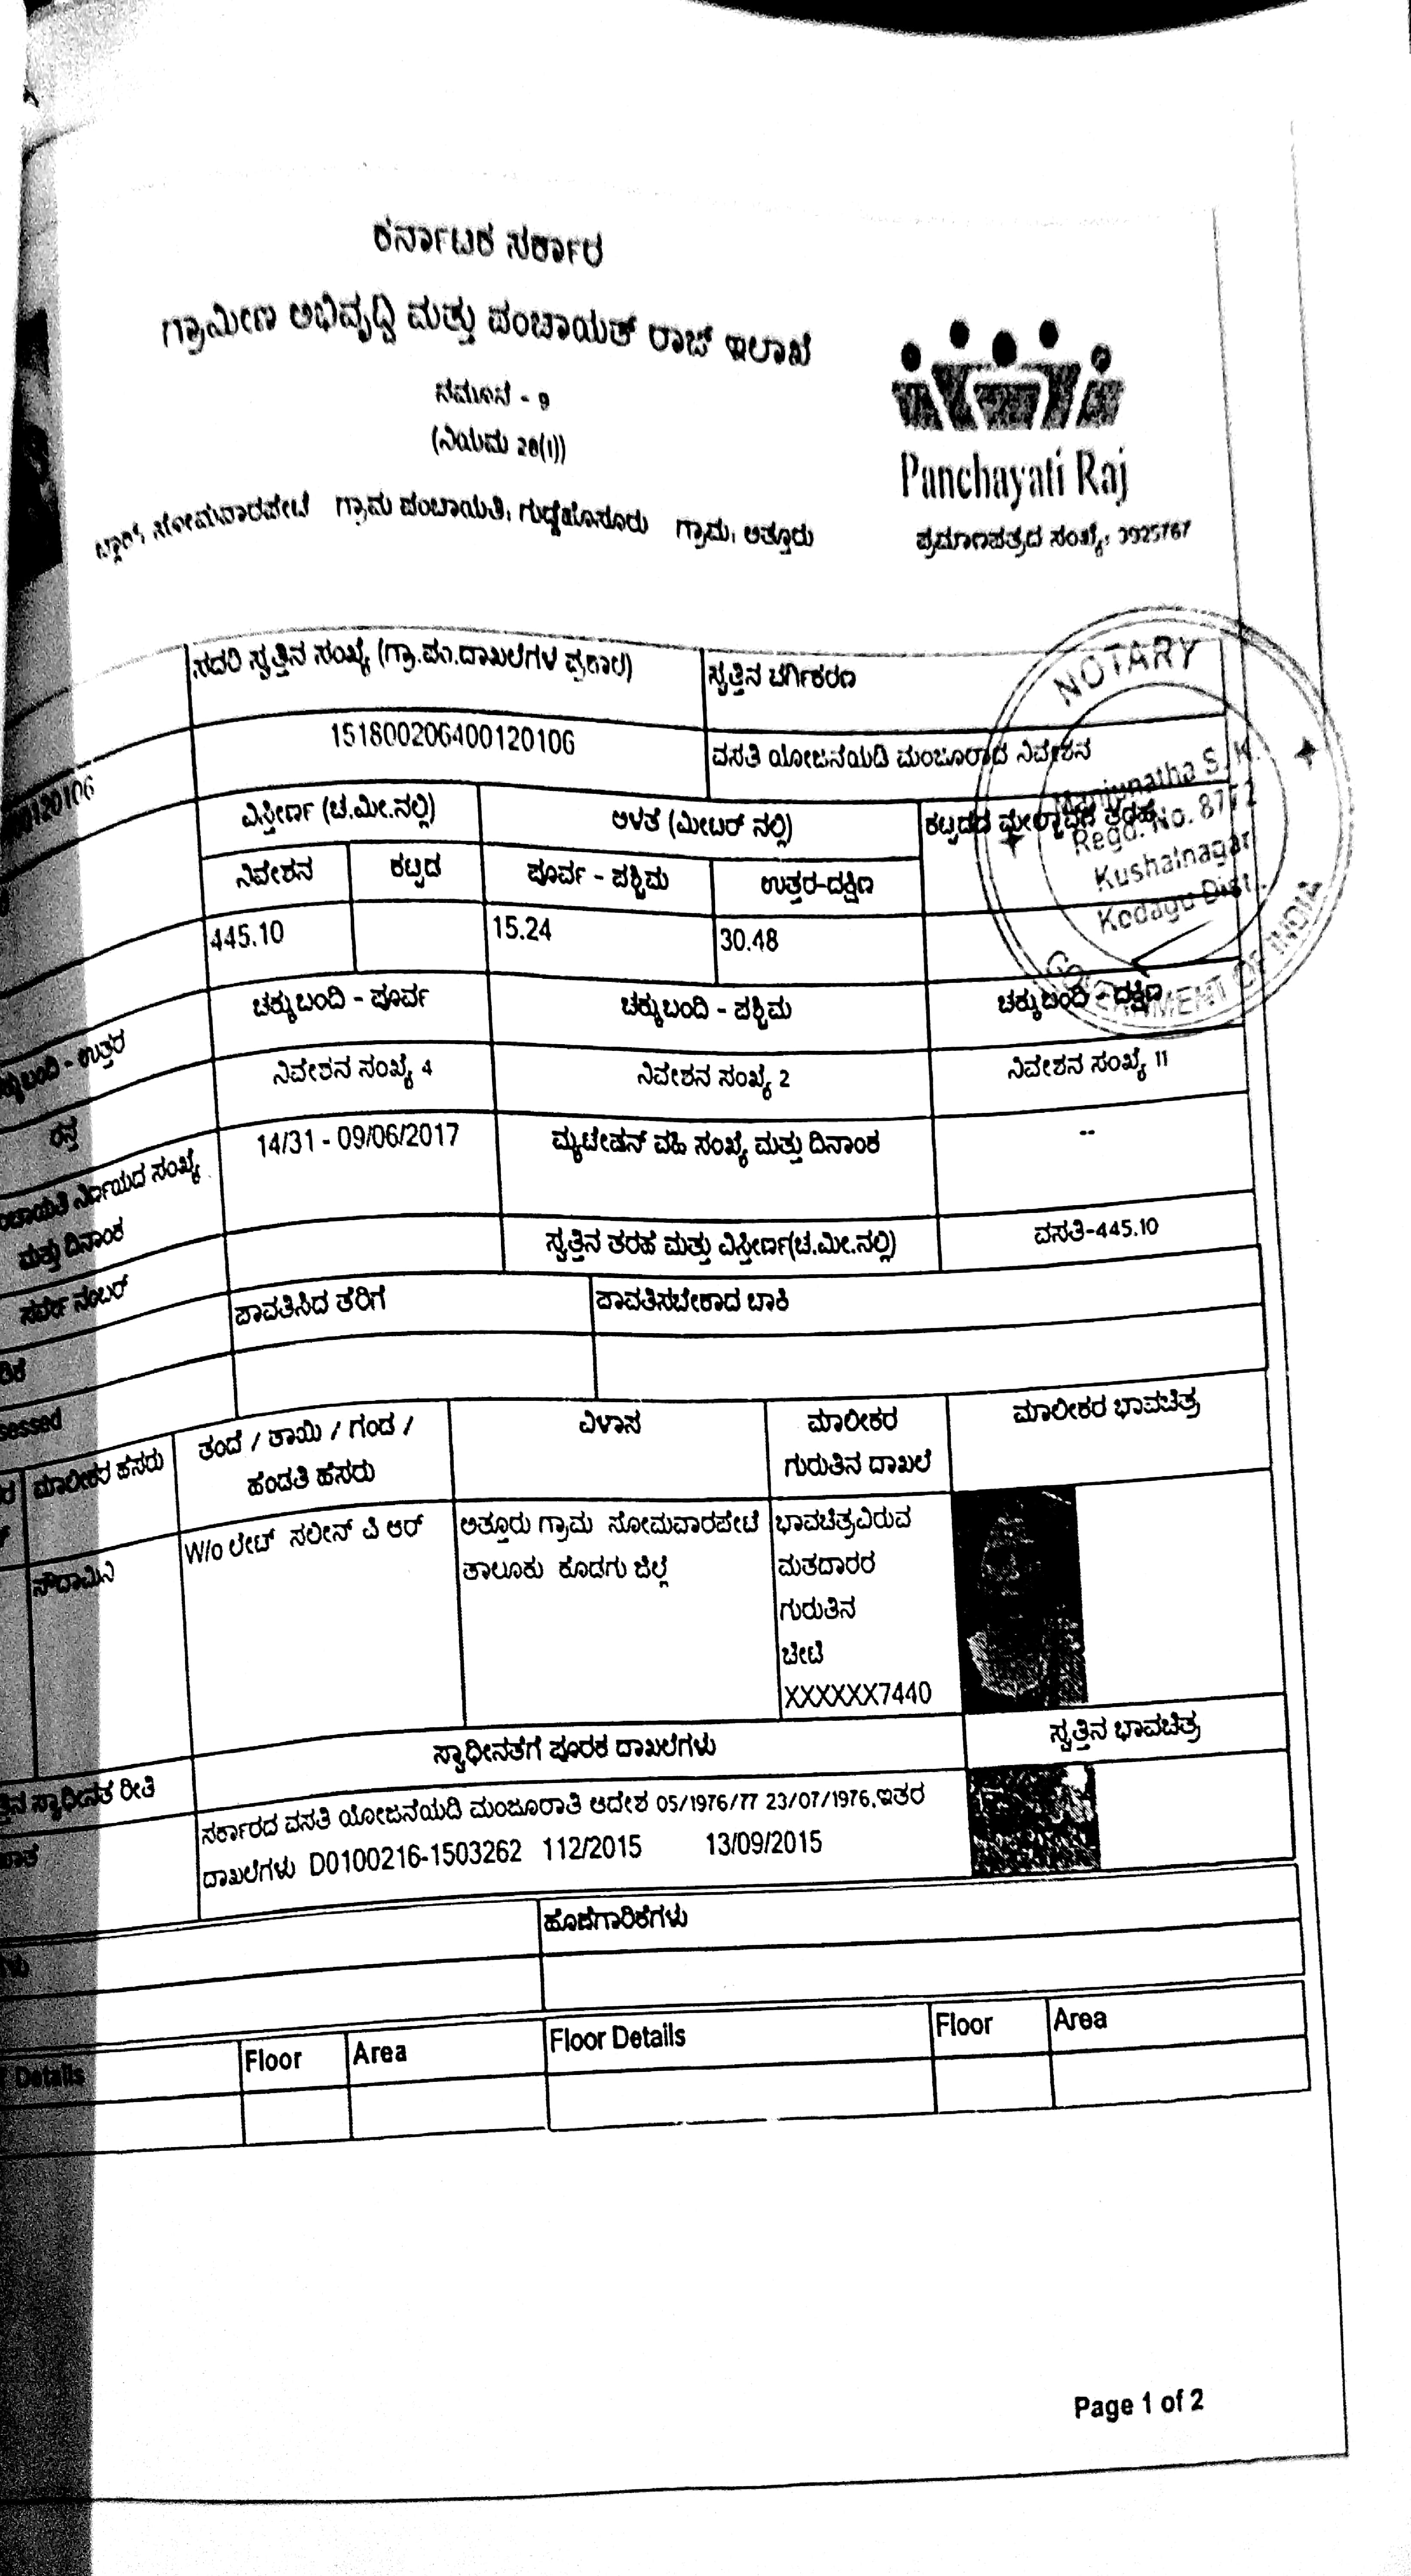 ಕರ್ನಾಟಕ ಸರ್ಕಾರ
ಗ್ರಾಮೀಣ ಅಭಿವೃದ್ಧಿ ಮತ್ತು ಪಂಚಾಯತ್ ರಾಜ್ ಇಲಾಖೆ
ನಮೂನೆ - 9
(ನಿಯಮ 28(1))
Panchayati Raj
ಬ್ಲಾಕ್ ಸೋಮವಾರಪೇಟೆ ಗ್ರಾಮ ಪಂಚಾಯತಿ: ಗುಡ್ಡೆಹೊಸೂರು ಗ್ರಾಮ: ಅತ್ತೂರು
ಪ್ರಮಾಣಪತ್ರದ ಸಂಖ್ಯೆ: 3925767
ಸದರಿ ಸ್ವತ್ತಿನ ಸಂಖ್ಯೆ (ಗ್ರಾ.ಪಂ.ದಾಖಲೆಗಳ ಪ್ರಕಾರ) ಸ್ವತ್ತಿನ ವರ್ಗೀಕರಣ
00120106 151800206400120106 ವಸತಿ ಯೋಜನೆಯಡಿ ಮಂಜೂರಾದ ನಿವೇಶನ
ವಿಸ್ತೀರ್ಣ (ಚ.ಮೀ.ನಲ್ಲಿ) ಅಳತೆ (ಮೀಟರ್ ನಲ್ಲಿ) ಕಟ್ಟಡದ ಮೇಲ್ಛಾವಣಿ ತರಹ
ನಿವೇಶನ ಕಟ್ಟಡ ಪೂರ್ವ - ಪಶ್ಚಿಮ ಉತ್ತರ-ದಕ್ಷಿಣ
445.10 15.24 30.48
NOTARY
Manjunatha S. K.
Regd. No. 8772
Kushalnagar
Kodagu Dist.
GOVERNMENT OF INDIA
ಚಕ್ಕುಬಂದಿ - ಉತ್ತರ ಚಕ್ಕುಬಂದಿ - ಪೂರ್ವ ಚಕ್ಕುಬಂದಿ - ಪಶ್ಚಿಮ ಚಕ್ಕುಬಂದಿ - ದಕ್ಷಿಣ
ರಸ್ತೆ ನಿವೇಶನ ಸಂಖ್ಯೆ 4 ನಿವೇಶನ ಸಂಖ್ಯೆ 2 ನಿವೇಶನ ಸಂಖ್ಯೆ 11
ಪಂಚಾಯತಿ ನಿರ್ಣಯದ ಸಂಖ್ಯೆ 14/31 - 09/06/2017 ಮ್ಯುಟೇಷನ್ ವಹಿ ಸಂಖ್ಯೆ ಮತ್ತು ದಿನಾಂಕ --
ಮತ್ತು ದಿನಾಂಕ
ಸರ್ವೆ ನಂಬರ್ ಸ್ವತ್ತಿನ ತರಹ ಮತ್ತು ವಿಸ್ತೀರ್ಣ(ಚ.ಮೀ.ನಲ್ಲಿ) ವಸತಿ-445.10
ಪಾವತಿಸಿದ ತೆರಿಗೆ ಪಾವತಿಸಬೇಕಾದ ಬಾಕಿ
sessed
ಮಾಲೀಕರ ಹೆಸರು ತಂದೆ / ತಾಯಿ / ಗಂಡ / ವಿಳಾಸ ಮಾಲೀಕರ ಮಾಲೀಕರ ಭಾವಚಿತ್ರ
ಹೆಂಡತಿ ಹೆಸರು ಗುರುತಿನ ದಾಖಲೆ
W/o ಲೇಟ್ ಸಲೀನ್ ವಿ ಆರ್ ಅತ್ತೂರು ಗ್ರಾಮ ಸೋಮವಾರಪೇಟೆ ಭಾವಚಿತ್ರವಿರುವ
ತಾಲೂಕು ಕೊಡಗು ಜಿಲ್ಲೆ ಮತದಾರರ
ಗುರುತಿನ
ಚೀಟಿ
XXXXXX7440
ಸ್ವಾಧೀನತೆಗೆ ಪೂರಕ ದಾಖಲೆಗಳು ಸ್ವತ್ತಿನ ಭಾವಚಿತ್ರ
ಸ್ವಾಧೀನತೆ ರೀತಿ
ಸರ್ಕಾರದ ವಸತಿ ಯೋಜನೆಯಡಿ ಮಂಜೂರಾತಿ ಆದೇಶ 05/1976/77 23/07/1976,ಇತರ
ದಾಖಲೆಗಳು D0100216-1503262 112/2015 13/09/2015
ಹೊಣೆಗಾರಿಕೆಗಳು
Details Floor Area Floor Details Floor Area
Page 1 of 2